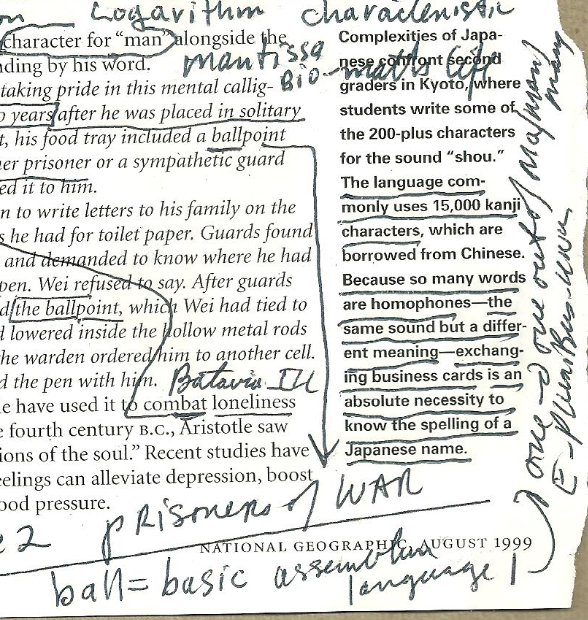 Logarithm characteristic
character for "man" alongside the
nding by his word.
mantissa
Bio-maths left
taking pride in this mental callig-
years after he was placed in solitary
t, his food tray included a ballpoint
er prisoner or a sympathetic guard
ed it to him.
n to write letters to his family on the
s he had for toilet paper. Guards found
and demanded to know where he had
pen. Wei refused to say. After guards
d the ballpoint, which Wei had tied to
d lowered inside the hollow metal rods
he warden ordered him to another cell.
d the pen with him.
Batavia Ill
e have used it to combat loneliness
e fourth century B.C., Aristotle saw
ions of the soul." Recent studies have
eelings can alleviate depression, boost
ood pressure.
Complexities of Japa-
nese confront second
graders in Kyoto, where
students write some of
the 200-plus characters
for the sound "shou."
The language com-
monly uses 15,000 kanji
characters, which are
borrowed from Chinese.
Because so many words
are homophones—the
same sound but a differ-
ent meaning—exchang-
ing business cards is an
absolute necessity to
know the spelling of a
Japanese name.
one out of many
E-pluribus-unum
e 2 prisoners of WAR
NATIONAL GEOGRAPHIC, AUGUST 1999
ball = basic assembly
language